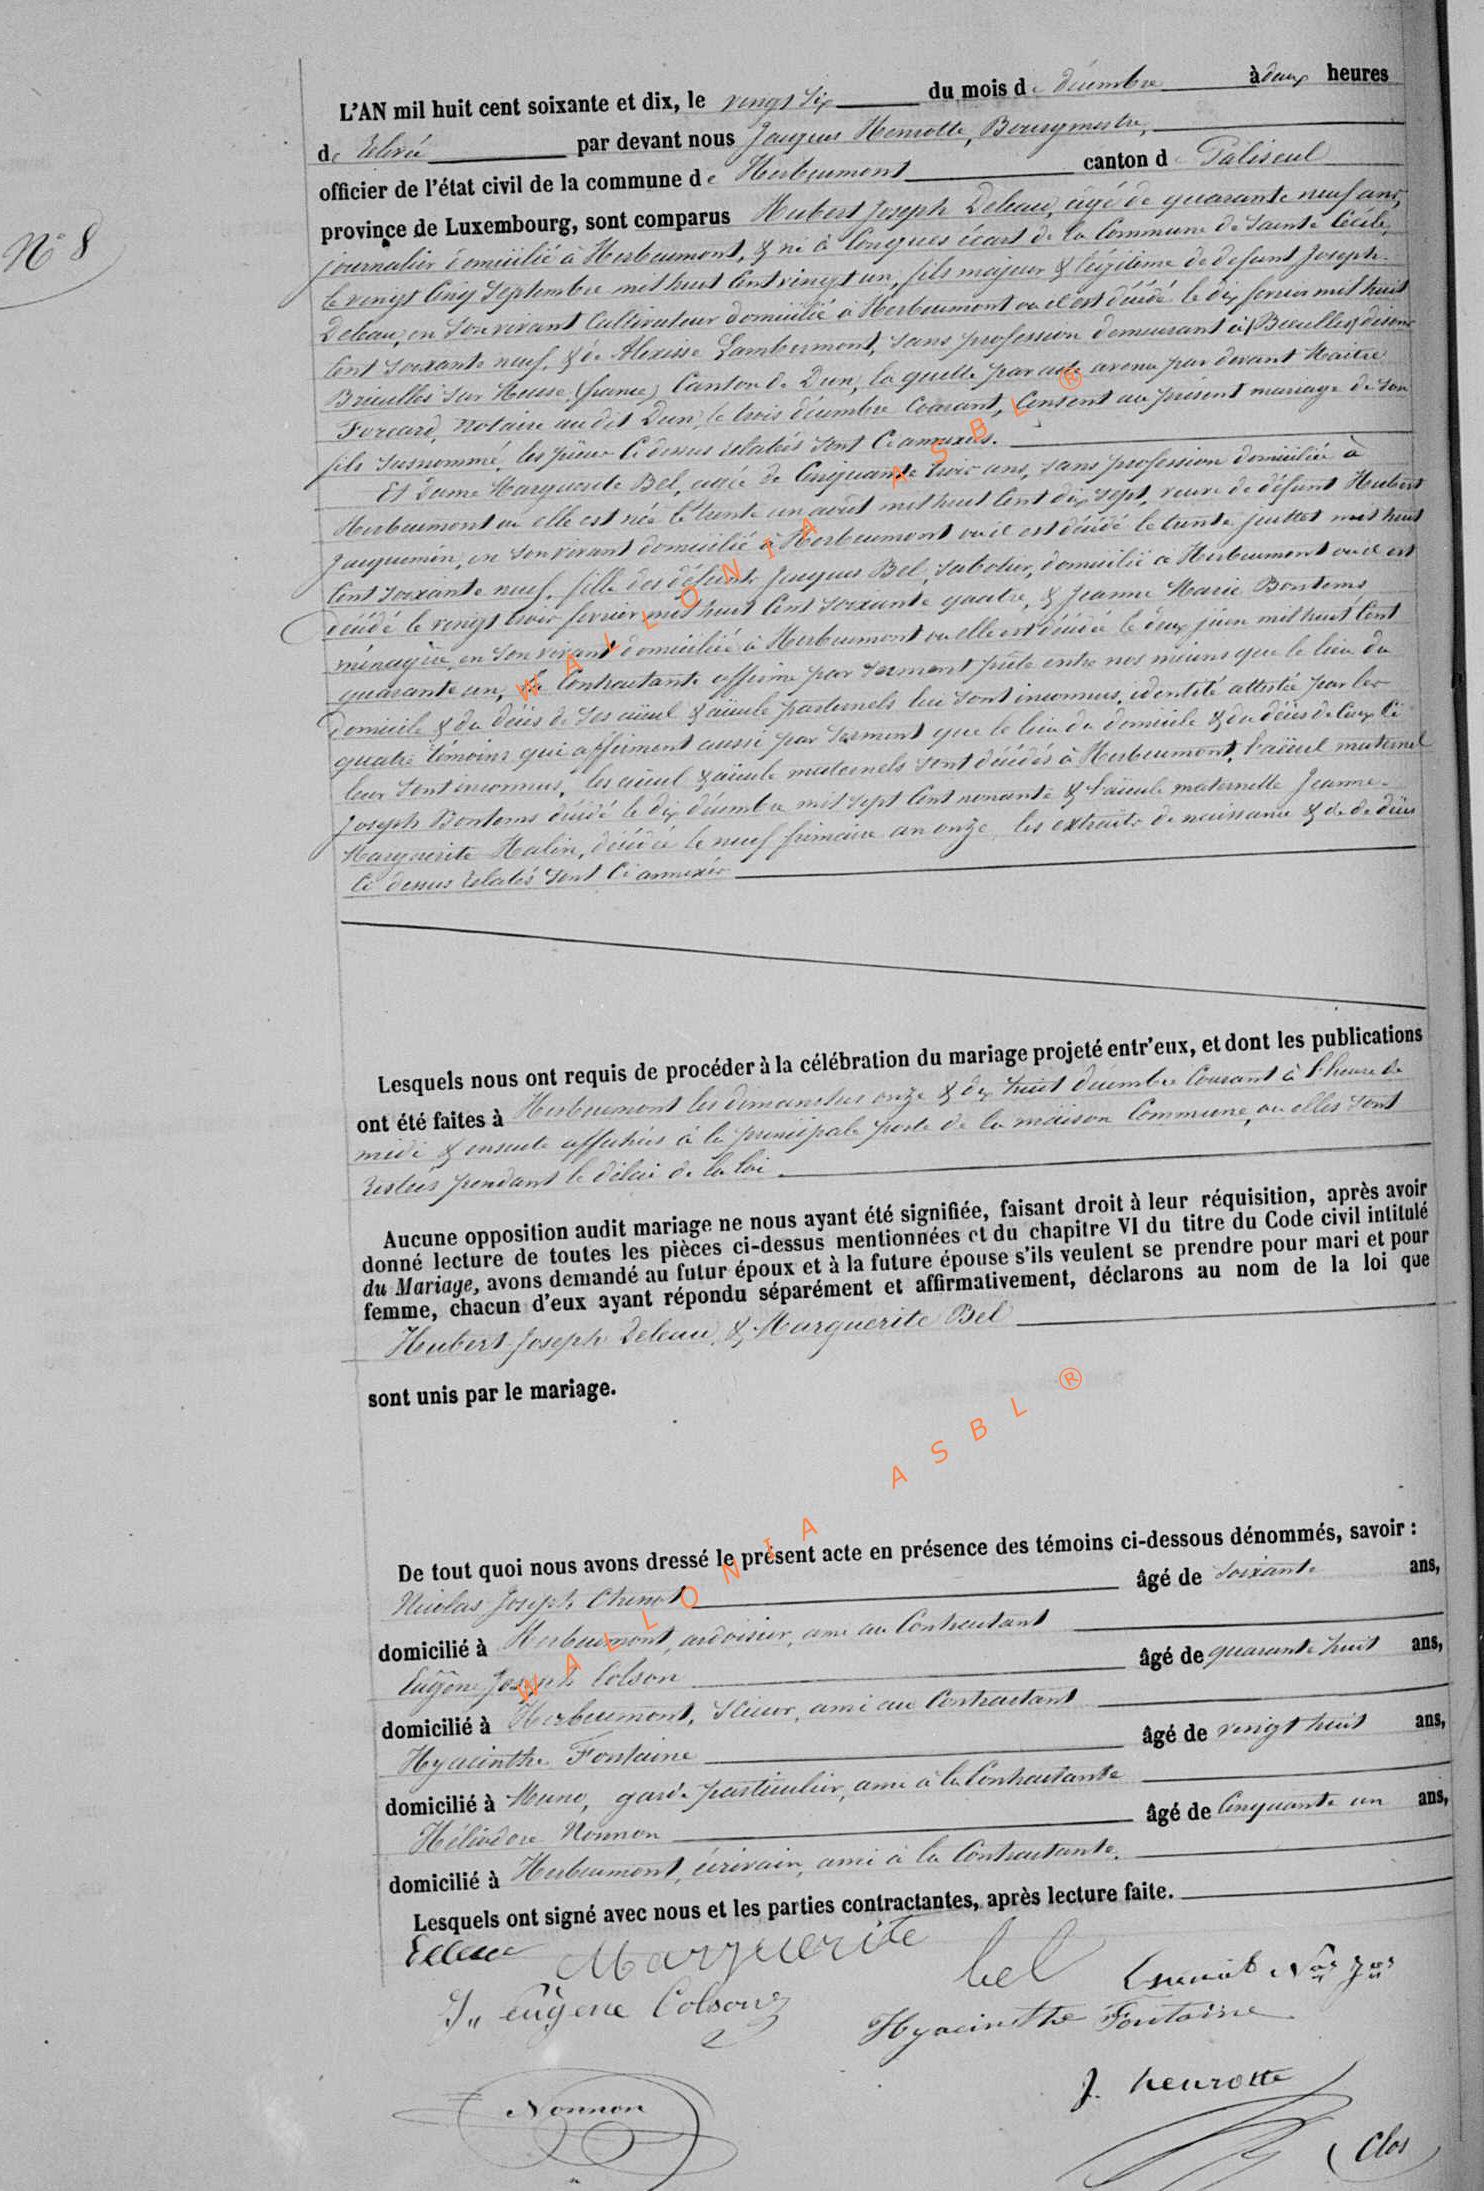 N° 8
L'AN mil huit cent soixante et dix, le vingt six du mois de décembre à deux heures
de relevée par devant nous Jacques Henrotte, Bourgmestre,
officier de l'état civil de la commune de Herbeumont canton de Paliseul
province de Luxembourg, sont comparus Hubert Joseph Deleau, âgé de quarante neuf ans,
journalier domicilié à Herbeumont, & né à Conques écart de la Commune de Sainte Cécile,
le vingt cinq Septembre mil huit cent vingt un, fils majeur & légitime de défunt Joseph
Deleau, en son vivant Cultivateur domicilié à Herbeumont où il est décédé le dix février mil huit
Cent soixante neuf, & de Alexisse Lambermont, sans profession demeurant à (Brieulles) disons
Brieulles sur Meuse (france) Canton de Dun, la quelle par acte avenu par devant Maitre
notaire au dit Dun, le trois décembre Courant, Consent au présent mariage de son
fils susnommé, les pièces Ci dessus relatées sont Ci annexées.
Et Dame Marguerite Bel, agée de Cinquante trois ans, sans profession domiciliée à
Herbeumont où elle est née le trente un août mil huit Cent dix sept, veuve de défunt Hubert
Jacquemin, en son vivant domicilié à Herbeumont où il est décédé le trente juillet mil huit
Cent soixante neuf, fille des défunts Jacques Bel, sabotier, domicilié à Herbeumont où il est
décédé le vingt trois fevrier mil huit Cent soixante quatre, & Jeanne Marie Bontems,
ménagère, en son vivant domiciliée à Herbeumont où elle est décédée le deux juin mil huit Cent
quarante un, la Contractante affirme par serment prêté entre nos mains que le lieu du
domicile & du décès de ses aïeul & aïeule paternels lui sont inconnus, identité attestée par les
quatre témoins qui affirment aussi par serment que le lieu du domicile & du décès de Ceux Ci
leur sont inconnus, les aïeul & aïeule maternels sont décédés à Herbeumont, l'aïeul maternel
Joseph Bontems décédé le dix décembre mil sept Cent nonante & l'aïeule maternelle Jeanne
Marguerite Halin, décédée le neuf frimaire an onze, les extraits de naissance & de décès
Ci dessus relatés sont Ci annexés
Lesquels nous ont requis de procéder à la célébration du mariage projeté entr'eux, et dont les publications
ont été faites à Herbeumont les dimanches onze & dix huit décembre Courant à l'heure de
midi & ensuite affichées à la principale porte de la maison Commune, où elles sont
restées pendant le délai de la loi.
Aucune opposition audit mariage ne nous ayant été signifiée, faisant droit à leur réquisition, après avoir
donné lecture de toutes les pièces ci-dessus mentionnées et du chapitre VI du titre du Code civil intitulé
du Mariage, avons demandé au futur époux et à la future épouse s'ils veulent se prendre pour mari et pour
femme, chacun d'eux ayant répondu séparément et affirmativement, déclarons au nom de la loi que
Hubert Joseph Deleau, & Marguerite Bel
sont unis par le mariage.
De tout quoi nous avons dressé le présent acte en présence des témoins ci-dessous dénommés, savoir :
Nicolas Joseph Chenot âgé de soixante ans,
domicilié à Herbeumont, ardoisier, ami au Contractant
Eugène Joseph Colson âgé de quarante huit ans,
domicilié à Herbeumont, scieur, ami au Contractant
Hyacinthe Fontaine âgé de vingt huit ans,
domicilié à Muno, garde particulier, ami à la Contractante
Héliodore Nonnon âgé de Cinquante un ans,
domicilié à Herbeumont, écrivain, ami à la Contractante.
Lesquels ont signé avec nous et les parties contractantes, après lecture faite.
Marguerite bel
J. Eugène Colson
Hyacinthe Fontaine
J. henrotte
Nonnon
Clos
WALLONIA ASBL ®
WALLONIA ASBL ®